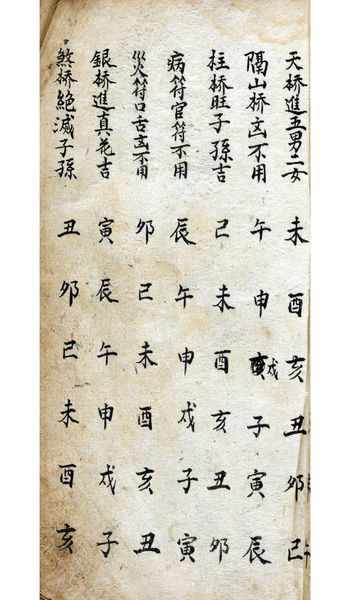 天桥進五男二女 未 酉 亥 丑 夘 巳
隔山桥㐫不用 午 申 戌 子 寅 辰
柱桥旺子孫吉 巳 未 酉 亥 丑 夘
病符官符不用 辰 午 申 戌 子 寅
災符口舌㐫不用 夘 巳 未 酉 亥 丑
銀桥進真花吉 寅 辰 午 申 戌 子
煞桥絕滅子孫 丑 夘 巳 未 酉 亥